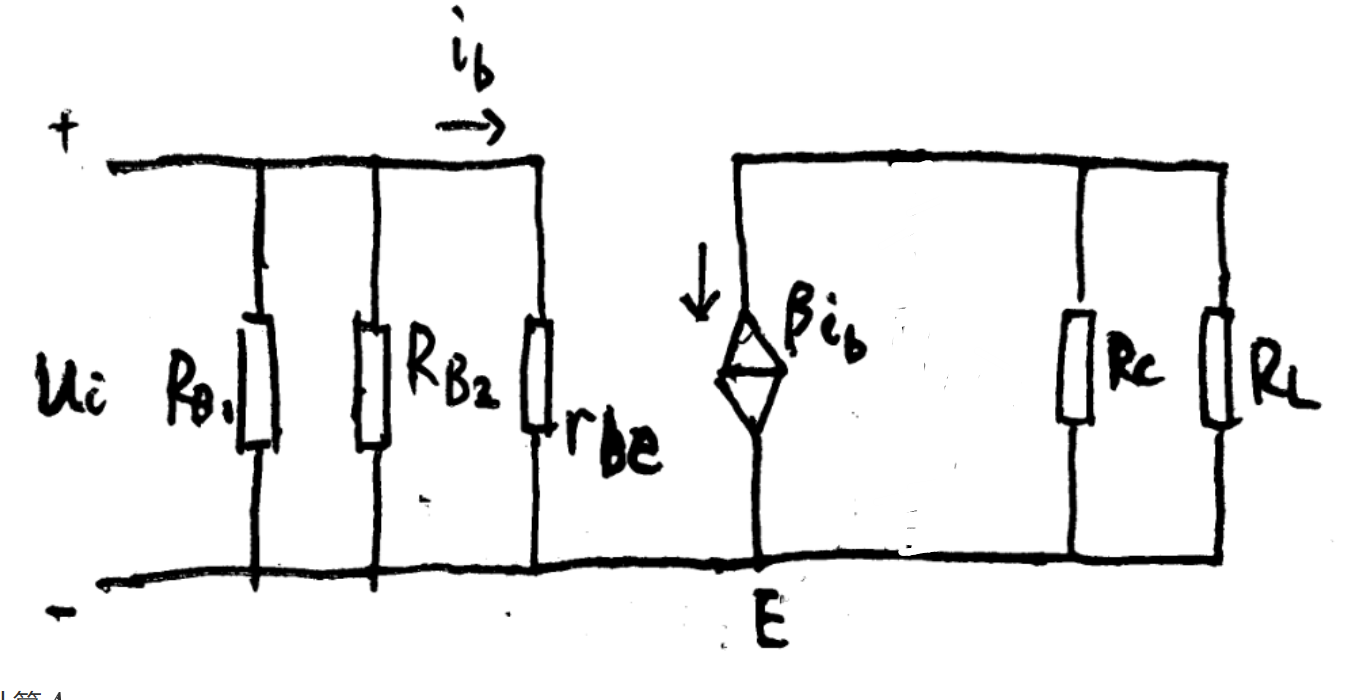 i_b
+
U_i
R_B1
R_B2
r_be
βi_b
R_C
R_L
-
E
算 A